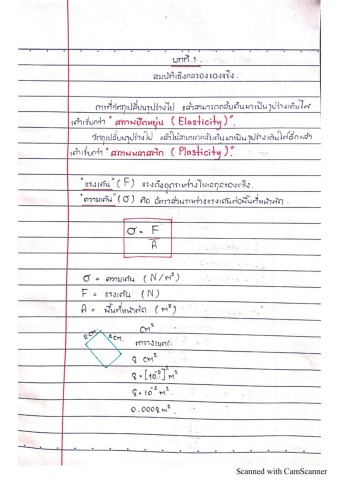 บทที่ 1
สมบัติเชิงกลของของแข็ง
การที่วัตถุเปลี่ยนรูปร่างไป แล้วสามารถกลับคืนมาเป็นรูปร่างเดิมได้
เราเรียกว่า "สภาพยืดหยุ่น (Elasticity)."
วัตถุเปลี่ยนรูปร่างไป แล้วไม่สามารถกลับคืนมาเป็นรูปร่างเดิมได้อีกแล้ว
เราเรียกว่า "สภาพพลาสติก (Plasticity)."
"แรงเค้น" (F) แรงดึงดูดระหว่างโมเลกุลของแข็ง.
"ความเค้น" (σ) คือ อัตราส่วนระหว่างแรงเค้นต่อพื้นที่หน้าตัด.
σ = F
A
σ = ความเค้น (N/m²)
F = แรงเค้น (N)
A = พื้นที่หน้าตัด (m²)
cm²
cm.
cm.
ตารางเมตร
8 cm²
8 × [10⁻²]² m²
0.0008 m².
Scanned with CamScanner